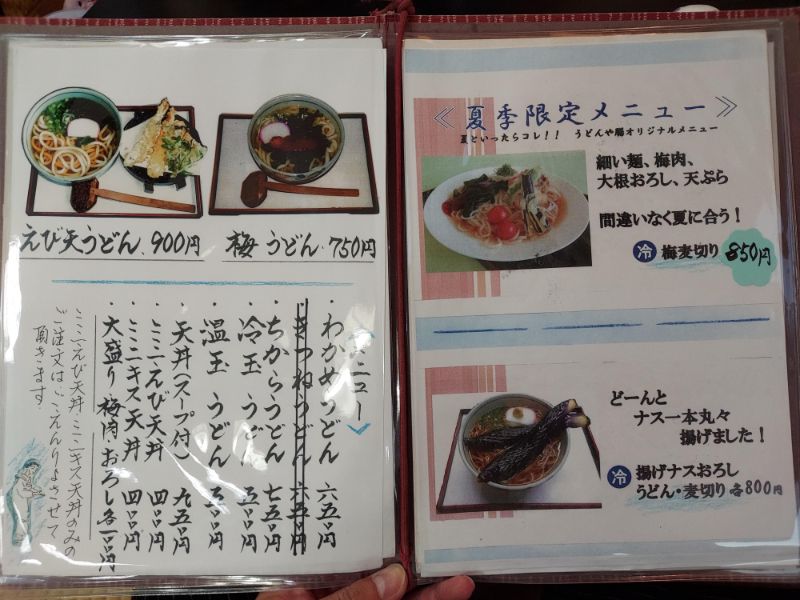 えび天うどん、900円
梅うどん・750円
メニュー
・わかめうどん 六五〇円
・きつねうどん 六五〇円
・ちからうどん 七五〇円
・冷玉うどん 五五〇円
・温玉うどん
・天丼(スープ付) 九五〇円
・ミニえび天丼 四五〇円
・ミニキス天丼 四五〇円
・大盛り 梅肉 おろし 各
ミニえび天丼 ミニキス天丼のみの
ご注文はごえんりょさせて
頂きます。
≪夏季限定メニュー≫
夏といったらコレ!! うどんや
オリジナルメニュー
細い麺、梅肉、
大根おろし、天ぷら
間違いなく夏に合う!
冷 梅麦切り 850円
どーんと
ナス一本丸々
揚げました!
冷 揚げナスおろし
うどん・麦切り 各800円